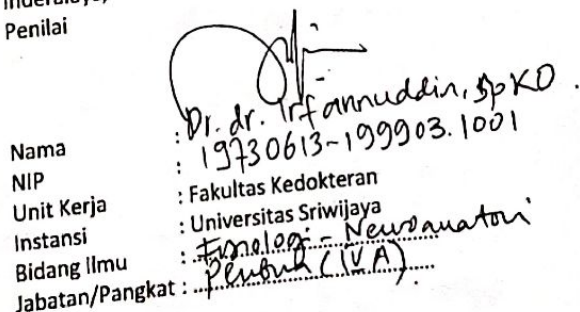 Penilai
Nama : Dr. dr. Irfannuddin, SpKO.
NIP : 19730613-199903.1001
Unit Kerja : Fakultas Kedokteran
Instansi : Universitas Sriwijaya
Bidang Ilmu : Fisiologi - Neuroanatomi
Jabatan/Pangkat : Pembina (IVA).